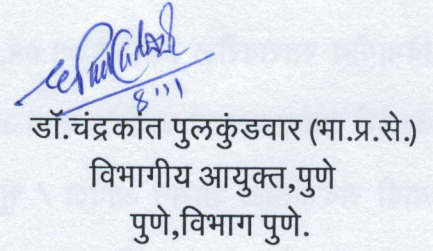 डॉ.चंद्रकांत पुलकुंडवार (भा.प्र.से.)
विभागीय आयुक्त,पुणे
पुणे,विभाग पुणे.